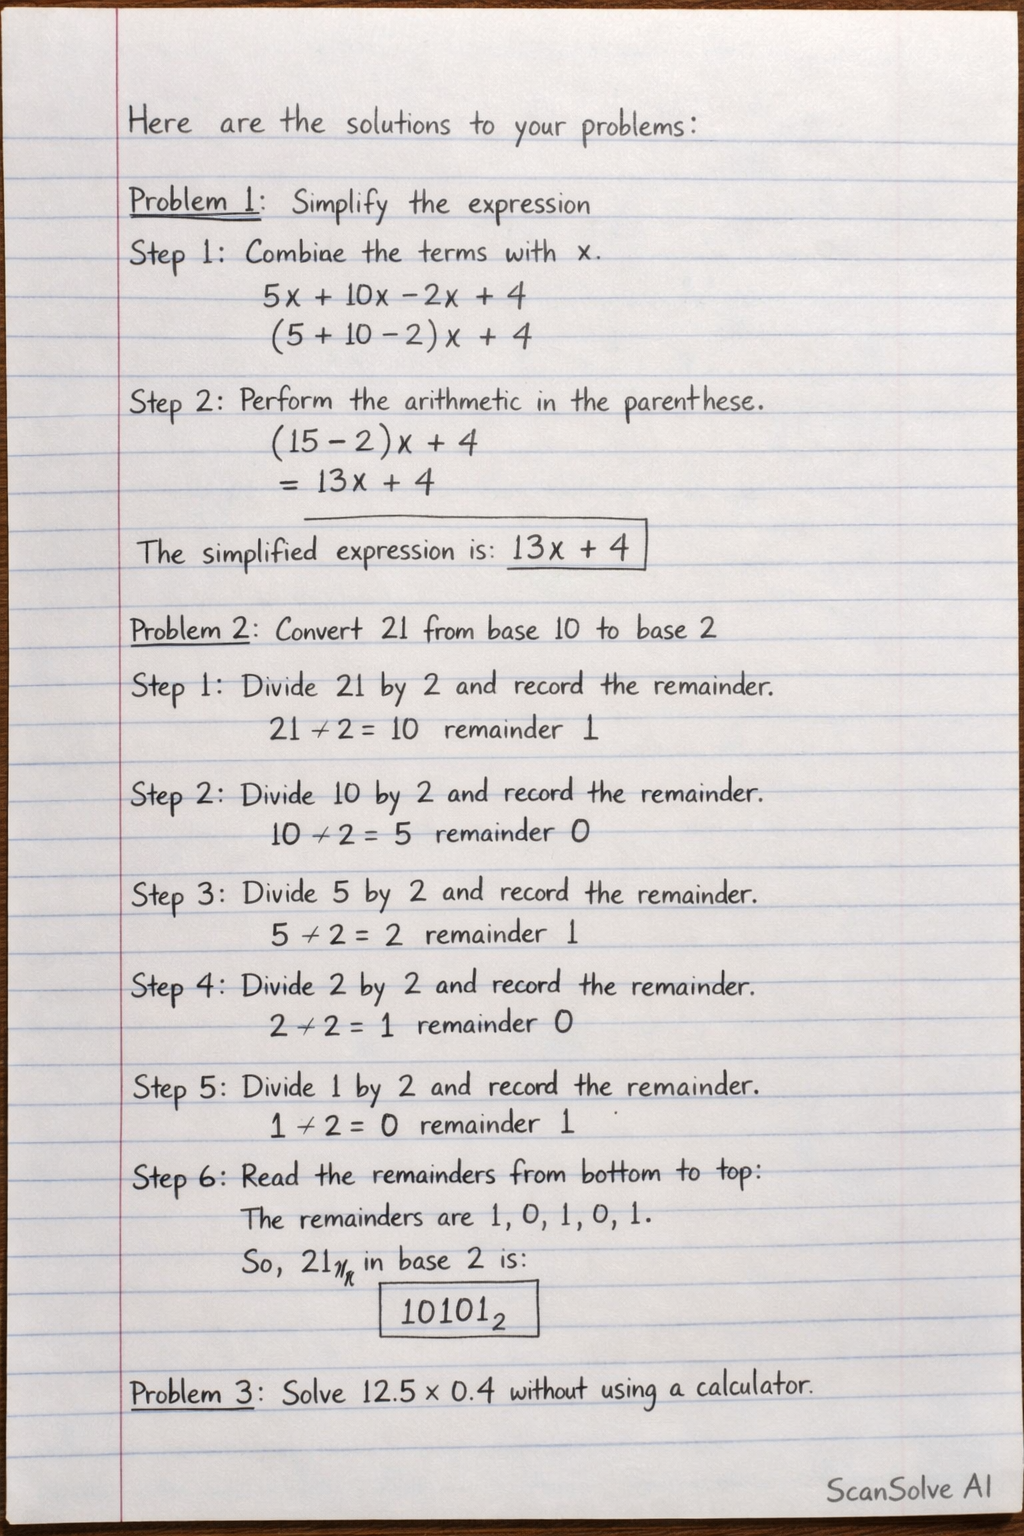 Here are the solutions to your problems:
Problem 1: Simplify the expression
Step 1: Combine the terms with x.
5x + 10x - 2x + 4
(5 + 10 - 2)x + 4
Step 2: Perform the arithmetic in the parenthese.
(15 - 2)x + 4
= 13x + 4
The simplified expression is: 13x + 4
Problem 2: Convert 21 from base 10 to base 2
Step 1: Divide 21 by 2 and record the remainder.
21 ÷ 2 = 10 remainder 1
Step 2: Divide 10 by 2 and record the remainder.
10 ÷ 2 = 5 remainder 0
Step 3: Divide 5 by 2 and record the remainder.
5 ÷ 2 = 2 remainder 1
Step 4: Divide 2 by 2 and record the remainder.
2 ÷ 2 = 1 remainder 0
Step 5: Divide 1 by 2 and record the remainder.
1 ÷ 2 = 0 remainder 1
Step 6: Read the remainders from bottom to top:
The remainders are 1, 0, 1, 0, 1.
So, 21 in base 2 is:
10101₂
Problem 3: Solve 12.5 × 0.4 without using a calculator.
ScanSolve AI